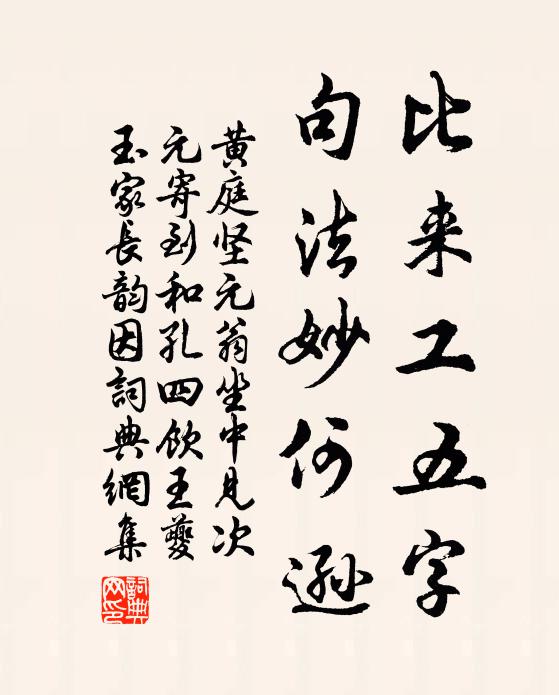 比来工五字
句法妙何遜
黄庭坚元翁坐中见次
元寄到和孔四饮王夔
玉家長韵因詞典網集
詞典
网印